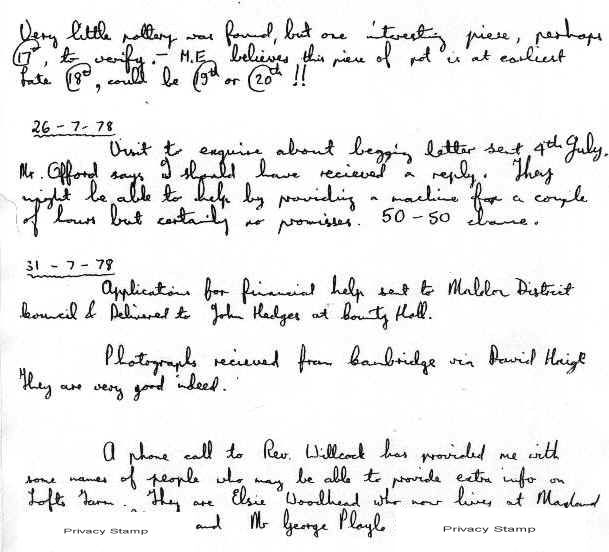 Very little pottery was found, but one interesting piece, perhaps
17th, to verify. - M.E. believes this piece of pot is at earliest
Late 18th, could be 19th or 20th !!
26 - 7 - 78
Visit to enquire about begging letter sent 4th July.
Mr. Offord says I should have recieved a reply. They
might be able to help by providing a machine for a couple
of hours but certainly no promisses. 50 - 50 chance.
31 - 7 - 78
Applications for financial help sent to Maldon District
Council & Delivered to John Hedges at County Hall.
Photographs recieved from Cambridge via David Haigh
They are very good indeed.
A phone call to Rev. Willcock has provided me with
some names of people who may be able to provide extra info on
Lofts Farm. They are Elsie Woodhead who now lives at Mayland
and Mr George Playle
Privacy Stamp
Privacy Stamp